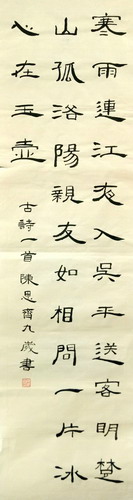 寒雨連江夜入吳平送客明楚
山孤洛陽親友如相問一片冰
心在玉壺
古詩一首陳思齊九歲書